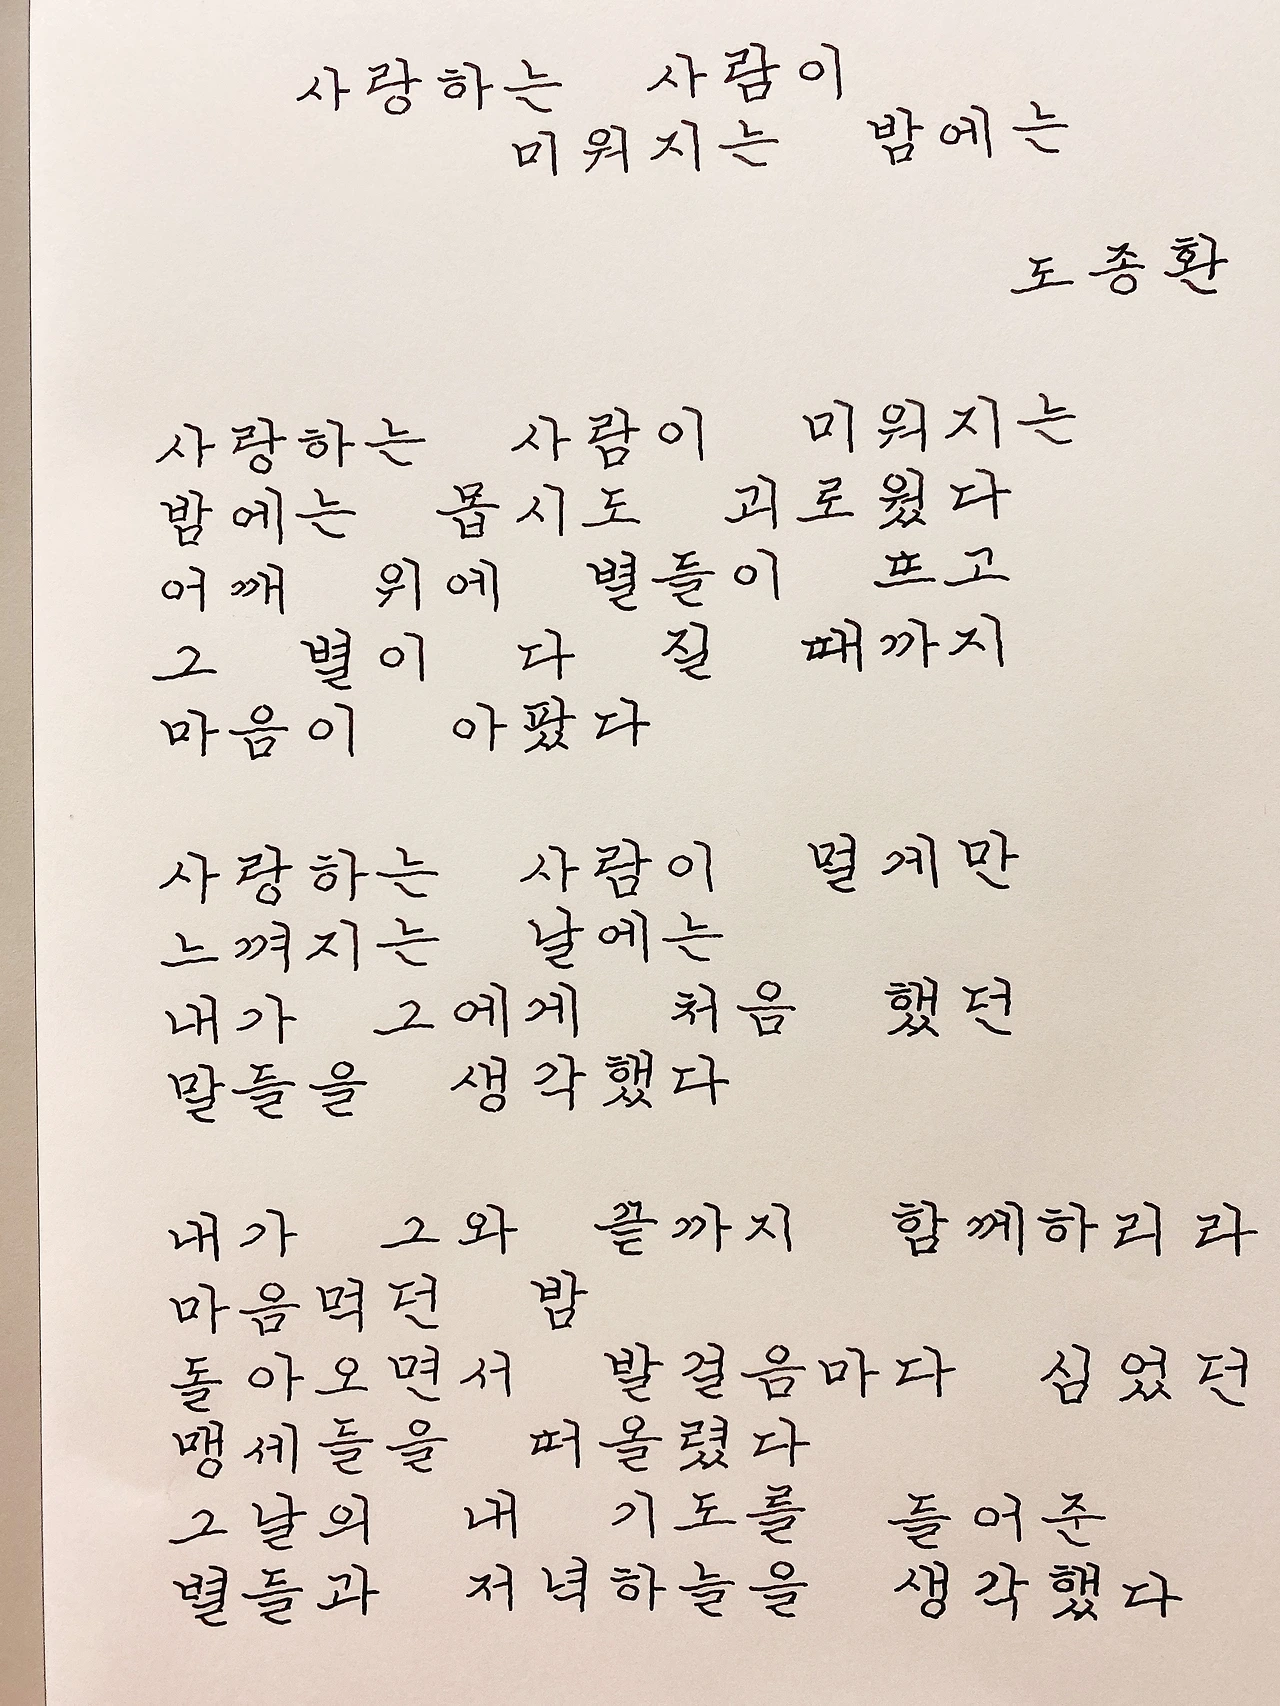 사랑하는 사람이
미워지는 밤에는
도종환
사랑하는 사람이 미워지는
밤에는 몹시도 괴로웠다
어깨 위에 별들이 뜨고
그 별이 다 질 때까지
마음이 아팠다
사랑하는 사람이 멀게만
느껴지는 날에는
내가 그에게 처음 했던
말들을 생각했다
내가 그와 끝까지 함께하리라
마음먹던 밤
돌아오면서 발걸음마다 심었던
맹세들을 떠올렸다
그날의 내 기도를 들어준
별들과 저녁하늘을 생각했다